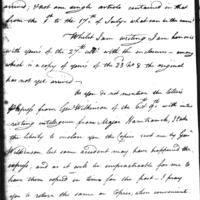 arrived; & not one single article contained in that
from the 9th to the 17th of July & what can be the cause!
Whilst I am writing I am honored
with yours of the 27th ulto. with the enclosures among
which is a copy of yours of the 23d ulto & the original
has not yet arrived
As you do not mention the letters
express from Genl Wilkinson of the with inte-
resting intelligence from Major Hamtramck, I take
you likely to inclose you the Copies sent me by Genl
Wilkinson but some accident may have happened the
express; and as it will be impracticable for me to
have them copied in time for the post. I pray
you to return the same or Copies, when convenient